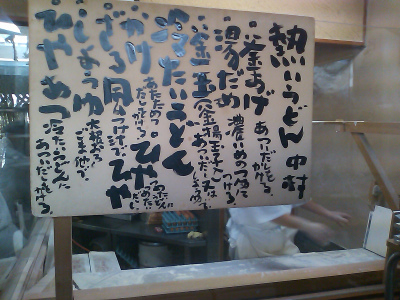 熱いうどん 中村
・釜あげ あつ〜いだしをかける。
・湯だめ 濃いめのつゆにつける。
・釜玉(釜揚玉子入) あつ〜いだし又はしょうゆで。
冷たいうどん
・かけ あたたかいだしをかける。
・ざる 冷たいつけ汁で。
・しょうゆ 大根おろしごま他で。
・ひやひや つめた〜いうどんにつめた〜いだし。
・ひやあつ 冷たいうどんにあつ〜いだしをかける。